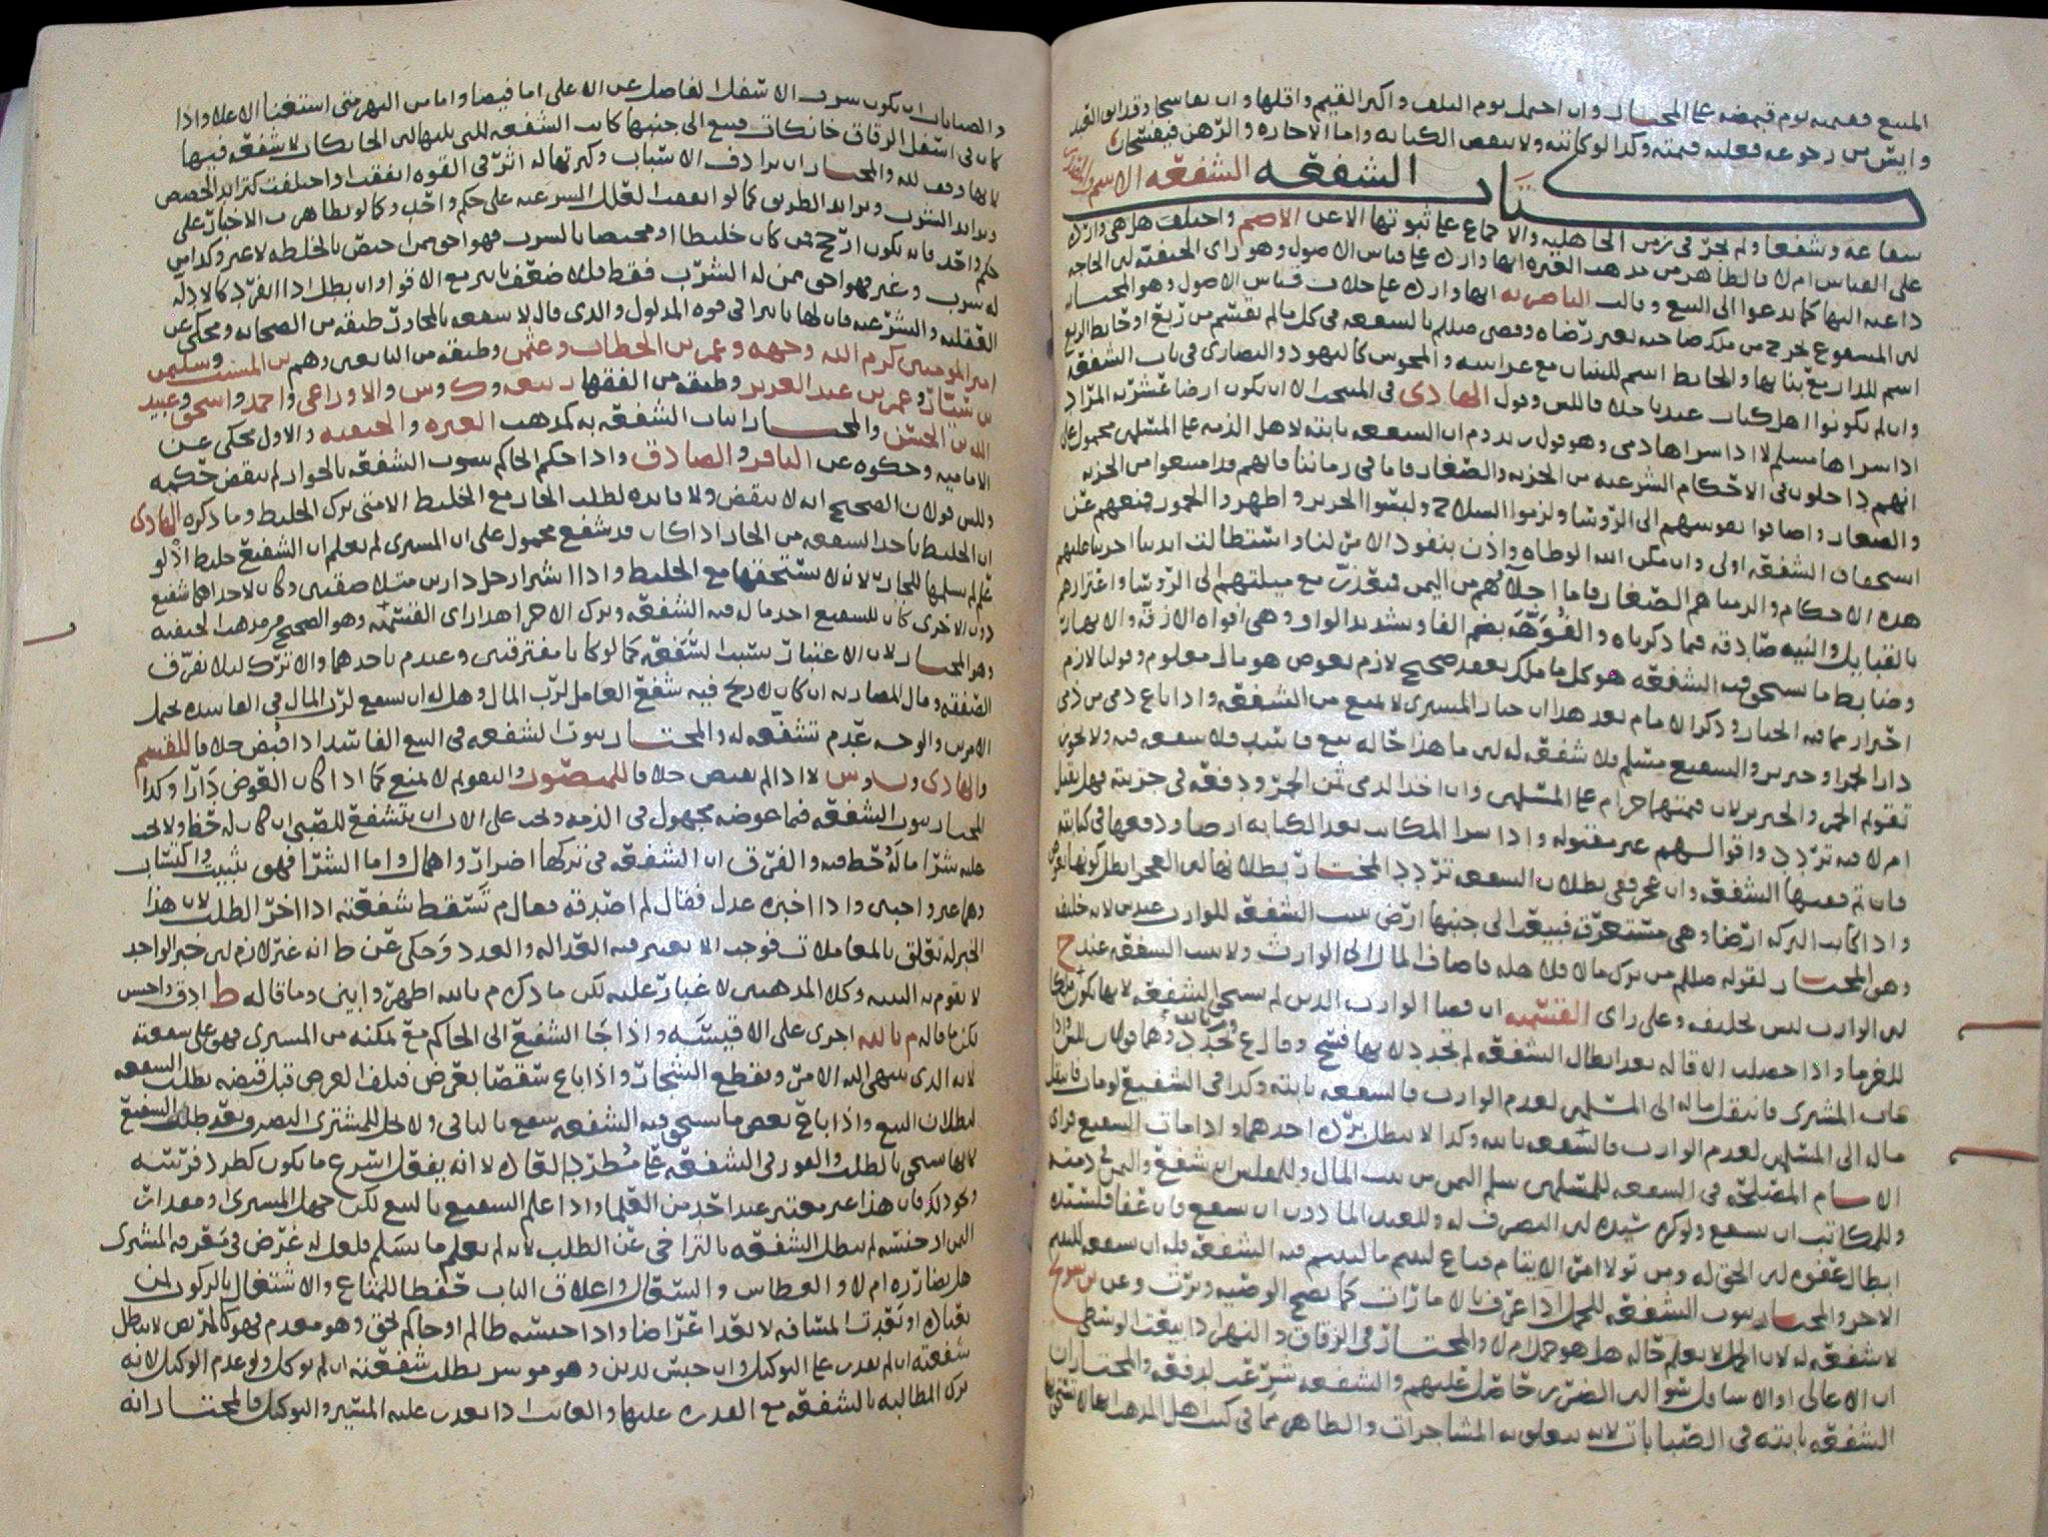 المبيع فقيمته يوم قبضه على المختار وان احتمل يوم التلف واكثر القيم واقلها وان تفاسخا وقد ابق العبد
وايس من رجوعه فعليه قيمته وكذا لو كاتبه ولا ينقض الكتابه واما الاجاره والرهن فيفسخان
كتاب الشفعه الشفعه الاسم
شفاعه وشفعا ولم تجر في زمن الجاهليه والاجماع على ثبوتها الا عن الاصم واختلف هل هي وارده
على القياس ام لا فالظاهر من مذهب العتره انها وارده على قياس الاصول وهو راى الحنفيه لان الحاجه
داعيه اليها كما تدعوا الى البيع وقالت الناصريه انها وارده على خلاف قياس الاصول وهو المختار
لان المشفوع يخرج من ملك صاحبه بغير رضاه وقضى صللم بالشفعه في كل ما لم يقسم من ربع او حايط الربع
اسم للدار مع بنايها والحايط اسم للبستان مع غراسه والمجوس كاليهود والنصارى في باب الشفعه
وان لم يكونوا اهل كتاب عندنا خلافا للس وقول الهادى في المنتخب الا ان يكون ارضا عشريه المراد
اذا شراها مسلم لا اذا شراها ذمى وهو قول زيد وم ان الشفعه ثابته لاهل الذمه على المسلمين محمول على
انهم داخلون في الاحكام الشرعيه من الجزيه والصغار فاما في زماننا فانهم قد امتنعوا من الجزيه
والصغار واضافوا نفوسهم الى الروسا ولزموا السلاح ولبسوا الحرير واظهروا الخمور فمنعهم عن
استحقاق الشفعه اولى وان مكن الله الوطاه واذن بنفوذ الامر لنا واستطالت ايدينا اجرينا عليهم
هذه الاحكام والزمناهم الصغار فاما اجلاوهم من اليمن فيتعذر مع ميلتهم الى الروسا واغترارهم
بالقبايل والنيه صادقه فيما ذكرناه والفُوَّهَه بضم الفا وتشديد الواو وهي افواه الازقه والانهار
وضابط ما يستحق فيه الشفعه هو كل ما ملك بعقد صحيح لازم بعوض هو مال معلوم وقولنا لازم
احتراز مما فيه الخيار وذكر الامام بعد هذا ان خيار المشترى لا يمنع من الشفعه واذا باع ذمى من ذمى
دارا بخمر او خنزير والشفيع مسلم فلا شفعه له لان ما هذا حاله بيع فاسد فلا شفعه فيه ولا يجوز
تقويم الخمر والخنزير لان قيمتهما حرام على المسلمين وان اخذ الذمى ثمن الخمر ودفعه في جزيته فهل يقبل
ام لا فيه تردد واقوالهم غير مقبوله واذا شرا المكاتب بعد الكتابه ارضا ودفعها في كتابته
فان تم ففيها الشفعه وان عجز ففي بطلان الشفعه تردد المختار بطلانها لان العجز ابطل كونها عوض
واذا كانت التركه ارضا وهي مستغرقه فبيعت الى جنبها ارض ثبت الشفعه للوارث عند س لانه خليفه
وهو المختار لقوله صللم من ترك مالا فلاهله فاضاف المال الى الوارث ولا تثبت الشفعه عند ح
لان الوارث ليس بخليفه وعلى راى القسميه ان قضا الوارث الدين لم يستحق الشفعه لانها تكون ملكا
للغرما واذا حصلت الاقاله بعد ابطال الشفعه لم تجدد لانها فسخ وقال ع تجدد وهما قولان للس واذا
غاب المشترى فانتقل ماله الى المسلمين لعدم الوارث فالشفعه ثابته وكذا في الشفيع لو مات فانتقل
ماله الى المسلمين لعدم الوارث فالشفعه ثابته وكذا لا تبطل برده احدهما واذا مات الشفيع فراى
الامام المصلحه في الشفعه للمسلمين سلم الثمن من بيت المال وللمفلس ان يشفع والثمن في ذمته
وللمكاتب ان يشفع ولو كره سيده لان التصرف له وللعبد الماذون ان يشفع فان عفا فلسيده
ابطال عفوه لان الحق له ومن تولا امر الايتام فباع ليتيم ما لليتيم فيه الشفعه فله ان يشفع لليتيم
الاخر والمختار ثبوت الشفعه للحمل اذا عرف بالامارات كما تصح الوصيه ويرث وعن بن سريج
لا شفعه له لان الحمل لا يعلم حاله هل هو حمل ام لا والمختار في الزقاق والنهر اذا بيعت الوسطى
ان الاعالى والاسافل سوا لان الضرر حاصل عليهم والشفعه شرعت لدفعه والمختار ان
الشفعه ثابته في الصبابات لانه يتعلق به المشاجرات والظاهر مما في كتب اهل المذهب انها لا تستحق
والصبابات ان يكون شرب الاسفل الفاضل عن الاعلى اما فيضا واما من النهر متى استغنا الاعلا واذا
كان في اسفل الزقاق خانكات فبيع الى جنبها كانت الشفعه للتى يليها لان الخانكات لا شفعه فيها
لانها وقف لله والمختار ان ترادف الاسباب وكثرتها له اثر في القوه اتفقت او اختلفت كتزايد الحصص
وتزايد الشرب وتزايد الطريق كما لو اتفقت العلل الشرعيه على حكم واحد وكما لو تظاهرت الاخبار على
حكم واحد فانه يكون ارجح فمن كان خليطا او مختصا بالشرب فهو احق ممن اختص بالخلطه لا غير وكذا من
له شرب وغيره فهو احق ممن له الشرب فقط فللاضعف تاثير مع الاقوا وان بطل اذا انفرد كالادله
العقليه والشرعيه فان لها تاثيرا في قوه المدلول والذى قال لا شفعه بالجوار طبقه من الصحابه ومحكى عن
امير المومنين كرم الله وجهه وعمر بن الخطاب وعثمن وطبقه من التابعين وهم بن المسيب وسليمن
بن يسار وعمر بن عبد العزيز وطبقه من الفقها ربيعه وك وس والاوزاعى واحمد واسحق وعبيد
الله بن الحسن والمختار اثبات الشفعه به كمذهب العتره والحنفيه والاول محكى عن
الاماميه وحكوه عن الباقر والصادق واذا حكم الحاكم بثبوت الشفعه بالجوار لم ينقض حكمه
وللس قولان الصحيح انه لا ينقض ولا فايده لطلب الجار مع الخليط الا متى ترك الخليط وما ذكره الهادى
ان الخليط ياخذ الشفعه من الجار اذا كان قد شفع محمول على ان المشترى لم يعلم ان الشفيع خليط اذ لو
علم لم يسلمها للجار لانه لا يستحقها مع الخليط واذا اشترا رجل دارين مثلا صفقتين وكان لاحداهما شفيع
دون الاخرى كان للشفيع اخذ ما له فيه الشفعه وترك الاخر هذا راى القسميه وهو الصحيح من مذهب الحنفيه
وهو المختار لان الاعتبار بسبب الشفعه كما لو كانا مفترقتين وعند م ياخذهما والا ترك ليلا تفرق
الصفقه ومال المضاربه ان كان لا ربح فيه شفع العامل لرب المال وهل له ان يشفع لرب المال في الفاسده يحتمل
الامرين والوجه عدم شفعه له والمختار ثبوت الشفعه في البيع الفاسد اذا قبض خلافا للقسم
والهادى ون وس لا اذا لم يقبض خلافا للمنصور والتقويم لا يمنع كما اذا كان العوض دارا وكذا
المختار ثبوت الشفعه فيما عوضه مجهول في الذمه ويجب على الاب ان يتشفع للصبى ان كان له حظ ولا يجب
عليه شرا ما له حظ فيه والفرق ان الشفعه في تركها اضرار واهمال واما الشرا فهو تثبيت واكتساب
وهما غير واجبين واذا اخبره عدل فقال لم اصدقه فعال م تسقط شفعته اذا اخر الطلب لان هذا
الخبر له تعلق بالمعاملات فوجب الا يعتبر فيه العداله والعدد وحكى عن ط انه غير لازم لان خبر الواحد
لا يقوم به البينه وكلا المذهبين لا غبار عليه لكن ما ذكره م بالله اظهر وابين وما قاله ط ادق واحسن
لكن ما قاله م بالله اجرى على الاقيسه واذا جا الشفيع الى الحاكم مع تمكنه من المشترى فهو على شفعته
لانه الذى ينتهى اليه الامر ويقطع الشجار واذا باع شقصا بعرض فتلف العرض قبل قبضه بطلت الشفعه
لبطلان البيع واذا باع بعض ما يستحق فيه الشفعه شفع بالباقى ولا يحل للمشترى التصرف بعد طلب الشفيع
لانها تستحق بالطلب والفور في الشفعه على مُطرد العاده لا انه يفعل اسرع ما يكون كطرد فرسه
ونحو ذلك فان هذا غير معتبر عند احد من العلما واذا علم الشفيع بالبيع لكن جهل المشترى ومقدار
الثمن او جنسه لم تبطل الشفعه بالتراخى عن الطلب لانه لم يعلم ما يسلم فلعل له غرض في معرفه المشترى
هل يضارره ام لا والعطاس والسعال واغلاق الباب حفظا للمتاع والاشتغال بالركوب لمن
يعتاده او بعدت المسافه لا يعد اعراضا واذا حبسه ظالم او حاكم بحق وهو معدم فهو كالمريض لا تبطل
شفعته ان لم يقدر على التوكيل وان حبس لدين وهو موسر بطلت شفعته ان لم يوكل ولو عدم الوكيل لانه
ترك المطالبه بالشفعه مع القدره عليها والغايب اذا تعذر عليه المسير والتوكيل فالمختار انه